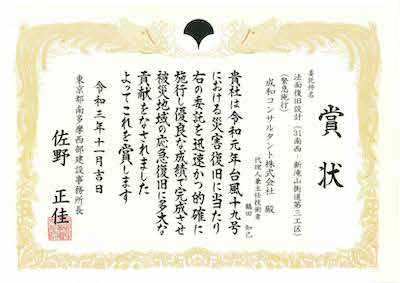 賞状
委託件名
法面復旧設計(31南西-新滝山街道第三工区)
(緊急施行)
成和コンサルタント株式会社 殿
代理人兼主任技術者
鶴田 知己
貴社は令和元年台風十九号
における災害復旧に当たり
右の委託を迅速かつ的確に
施行し優良な成績で完成させ
被災地域の応急復旧に多大な
貢献をなされました
よってこれを賞します
令和三年十一月吉日
東京都南多摩西部建設事務所長
佐野 正佳